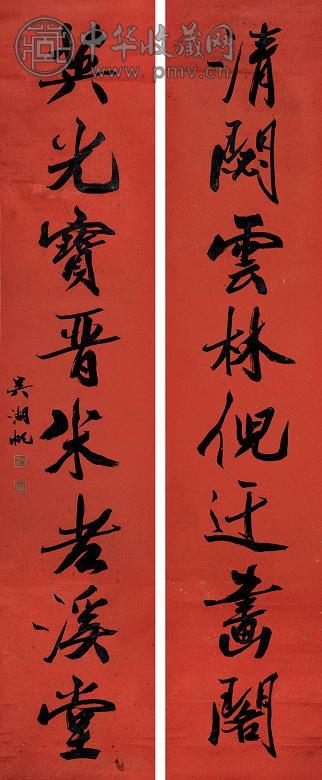 中华收藏网
www.pmv.cn
清閟雲林倪迂畫閣
英光寶晋米老溪堂
吳湖帆